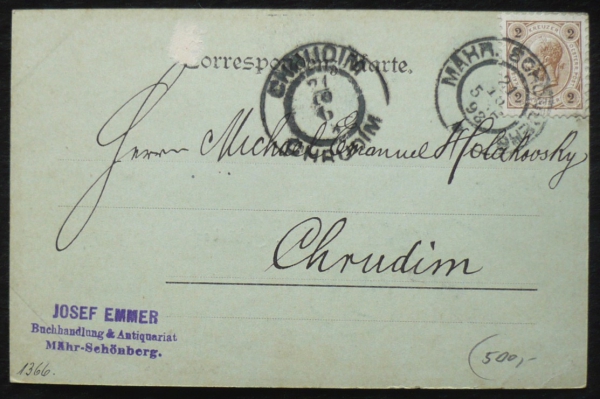 Correspondenz-Karte.
CHRUDIM
CHRUDIM
MÄHR. SCHÖNBERG
2 2
2 2
Herrn Michael Emanuel Holakovsky
Chrudim
JOSEF EMMER
Buchhandlung & Antiquariat
Mähr-Schönberg.
1366.
(500,-